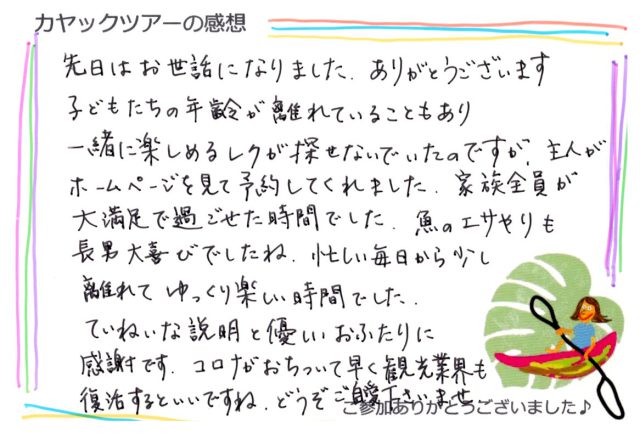 カヤックツアーの感想
先日はお世話になりました。ありがとうございます
子どもたちの年齢が離れていることもあり
一緒に楽しめるレクが探せないでいたのですが、主人が
ホームページを見て予約してくれました。家族全員が
大満足で過ごせた時間でした。魚のエサやりも
長男大喜びでしたね。忙しい毎日から少し
離れてゆっくり楽しい時間でした。
ていねいな説明と優しいおふたりに
感謝です。コロナがおちついて早く観光業界も
復活するといいですね。どうぞご自愛下さいませ
ご参加ありがとうございました♪